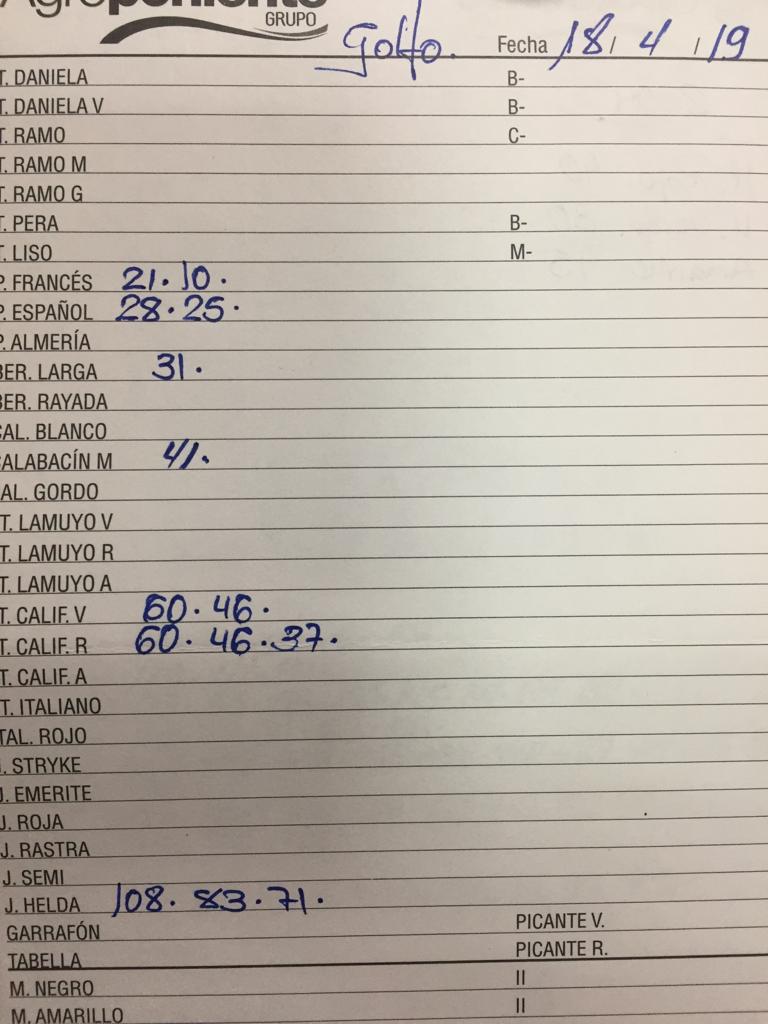 Agroponiente
GRUPO
Golfo. Fecha 18/ 4 /19
T. DANIELA B-
T. DANIELA V B-
T. RAMO C-
T. RAMO M
T. RAMO G
T. PERA B-
T. LISO M-
P. FRANCÉS 21. 10.
P. ESPAÑOL 28. 25.
P. ALMERÍA
BER. LARGA 31.
BER. RAYADA
CAL. BLANCO
CALABACÍN M 41.
AL. GORDO
T. LAMUYO V
T. LAMUYO R
T. LAMUYO A
T. CALIF. V 60. 46.
T. CALIF. R 60. 46. 37.
T. CALIF. A
T. ITALIANO
TAL. ROJO
J. STRYKE
J. EMERITE
J. ROJA
J. RASTRA
J. SEMI
J. HELDA 108. 83. 71.
GARRAFÓN PICANTE V.
TABELLA PICANTE R.
M. NEGRO II
M. AMARILLO II